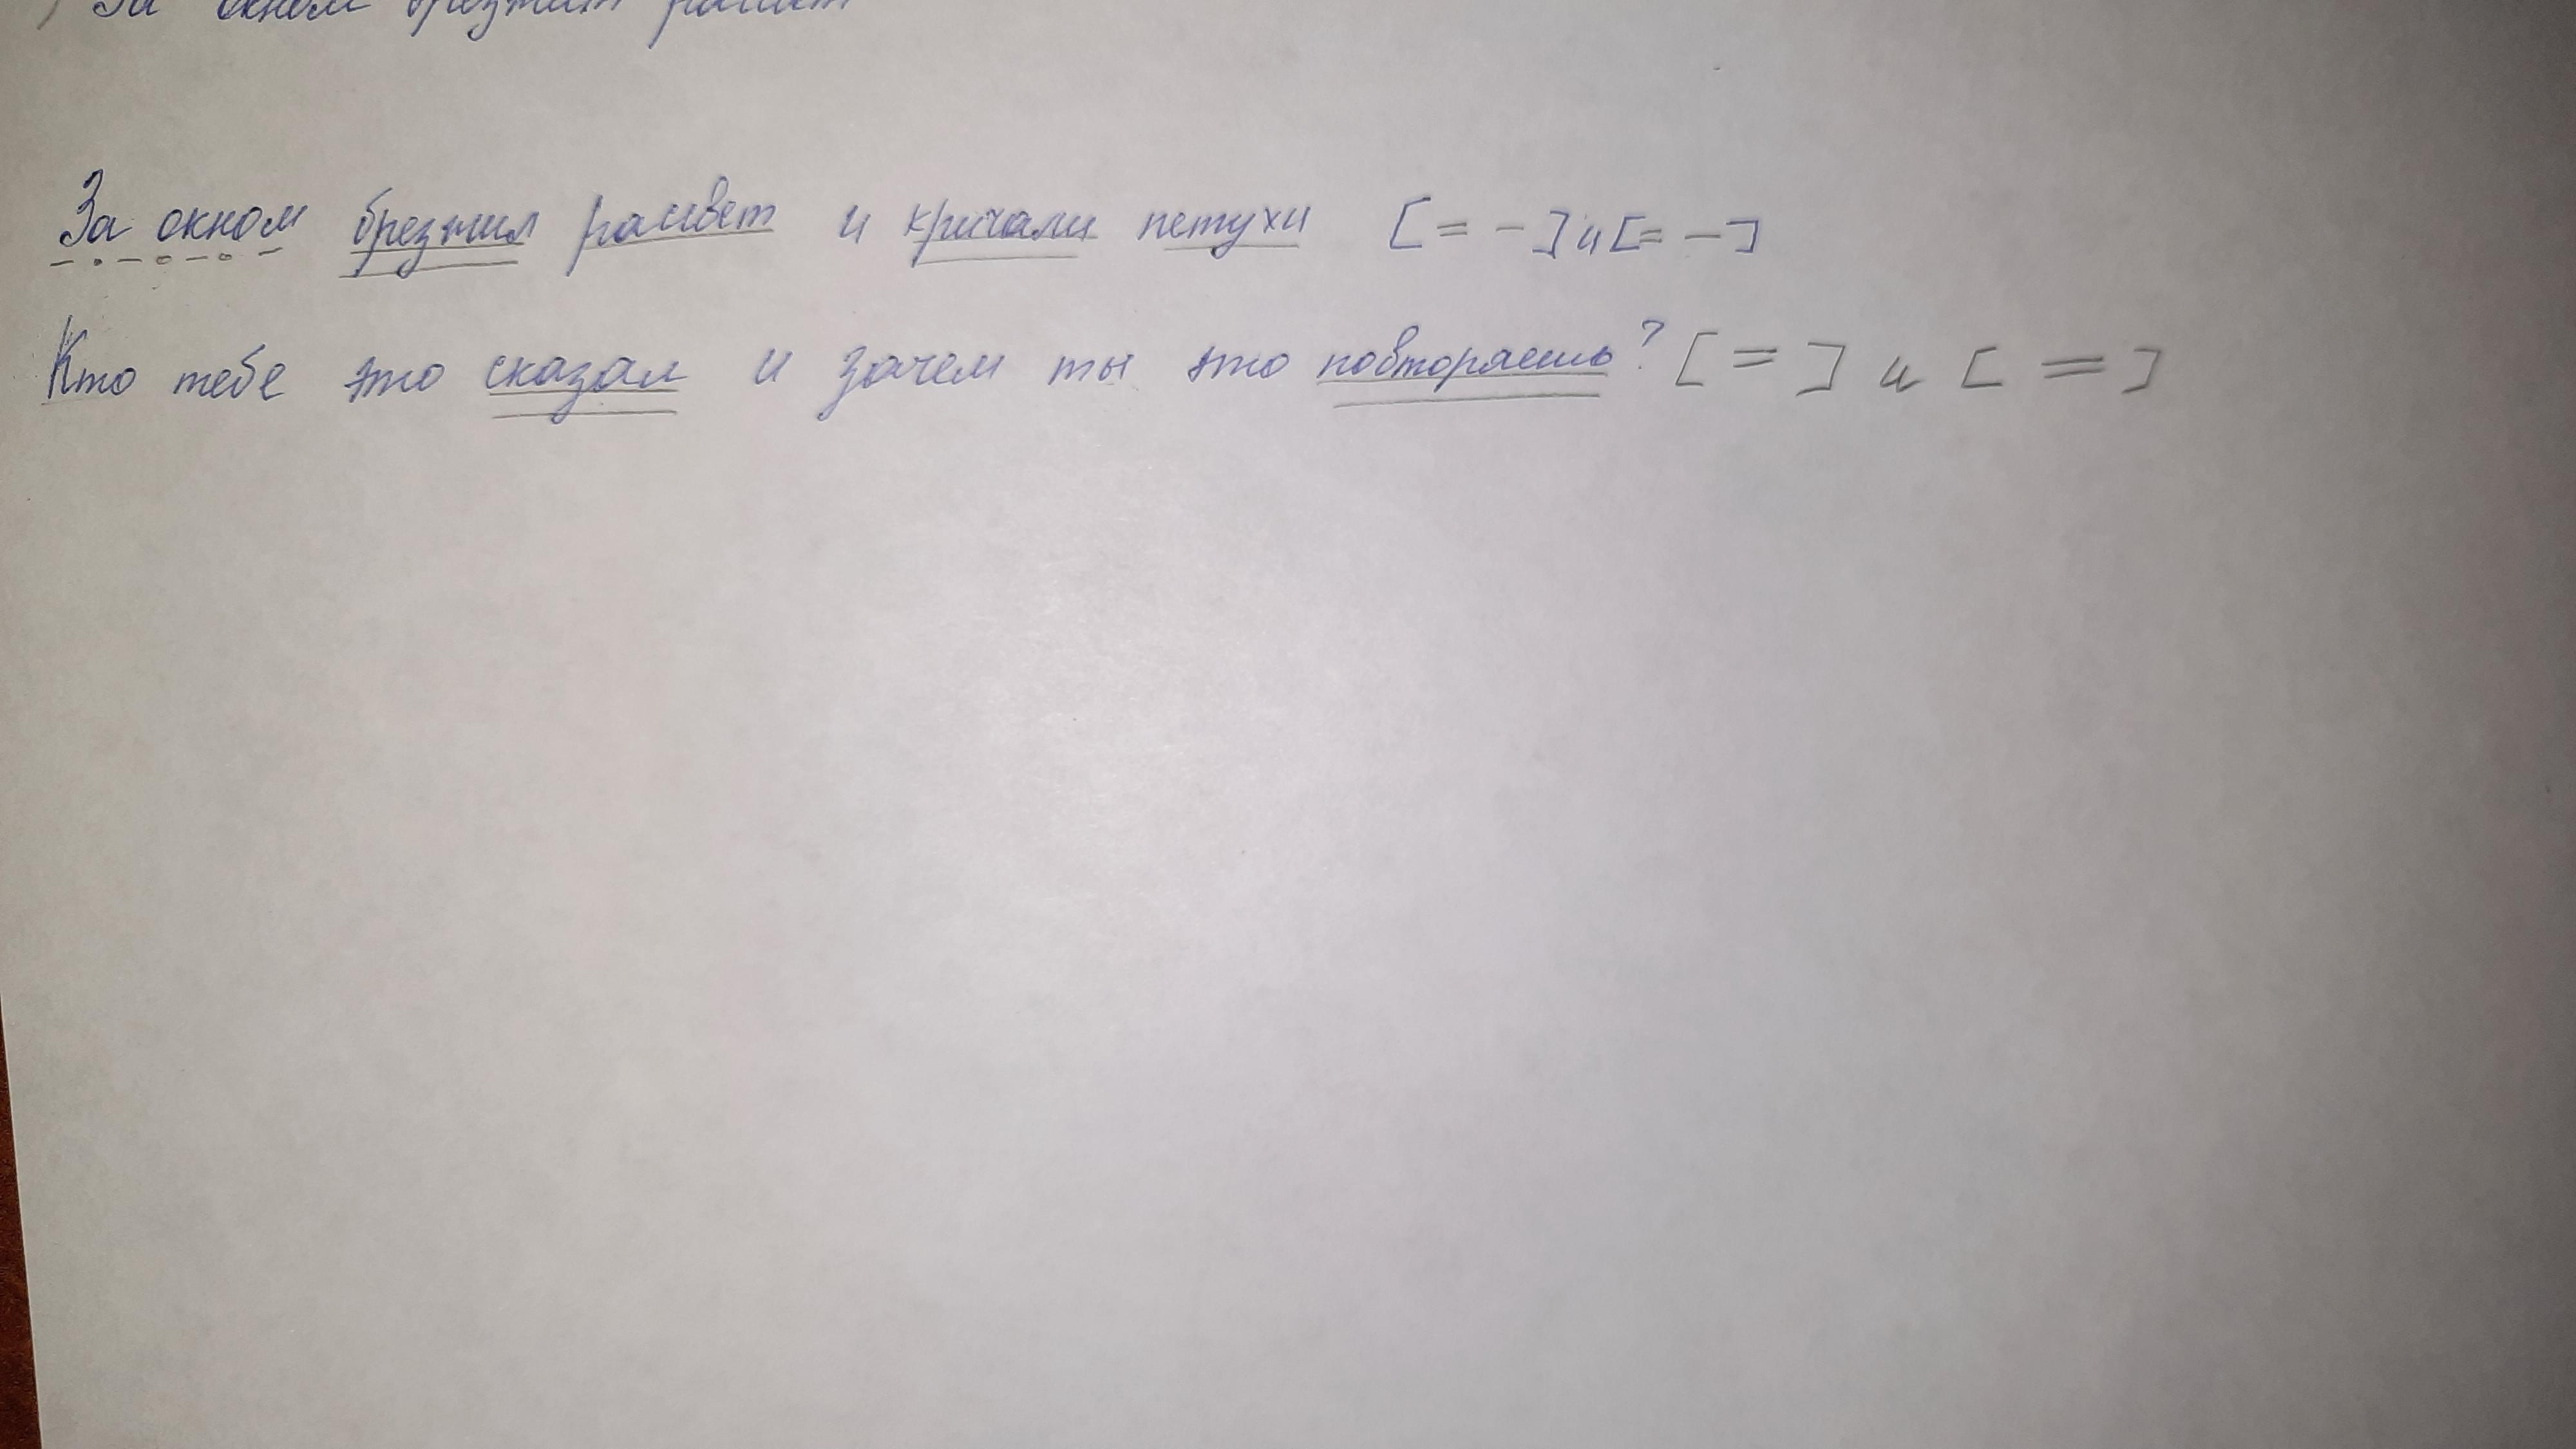 За окном брезжил рассвет
За окном брезжил рассвет и кричали петухи [= -] и [= -]
Кто тебе это сказал и зачем ты это повторяешь? [=] и [=]